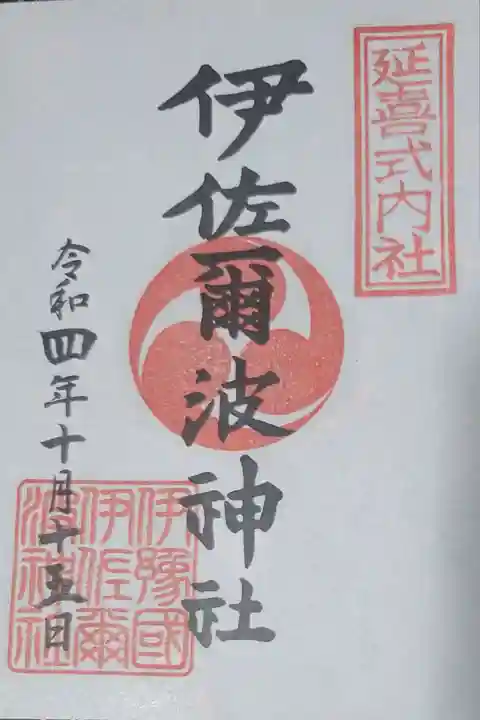 延喜式内社
伊佐爾波神社
令和四年十月十五日
伊豫國
伊佐爾
波神社